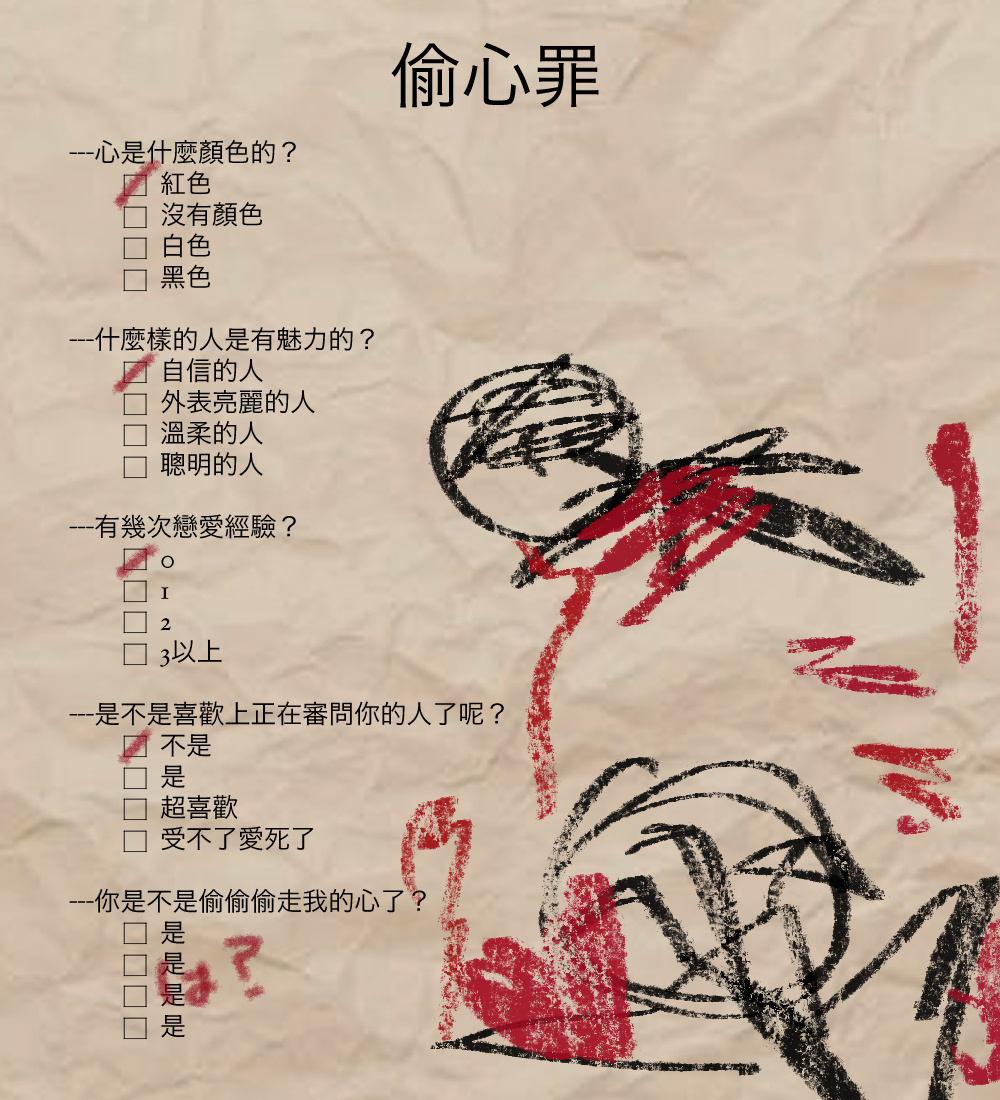 偷心罪
---心是什麼顏色的？
紅色
沒有顏色
白色
黑色
---什麼樣的人是有魅力的？
自信的人
外表亮麗的人
溫柔的人
聰明的人
---有幾次戀愛經驗？
0
1
2
3以上
---是不是喜歡上正在審問你的人了呢？
不是
是
超喜歡
受不了愛死了
---你是不是偷偷偷走我的心了？
是
是
是
是
は？